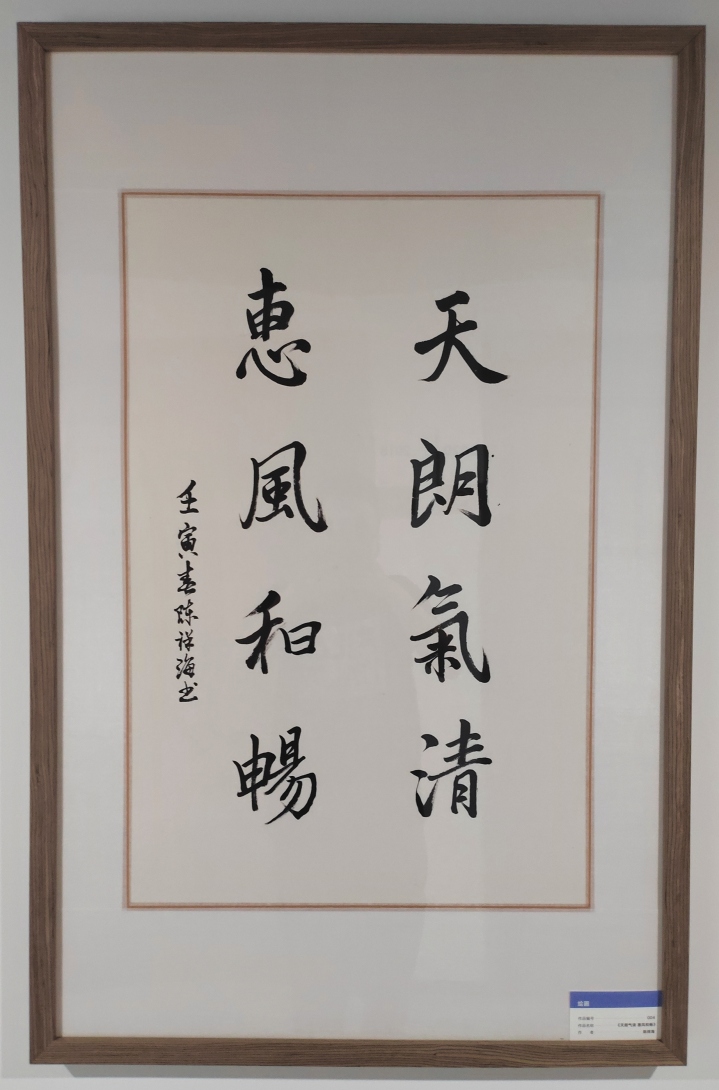 天朗氣清
惠風和暢
壬寅春陈祥海书
绘画
作品编号
作品名称 《天朗气清 惠风和畅》
作 者 陈祥海